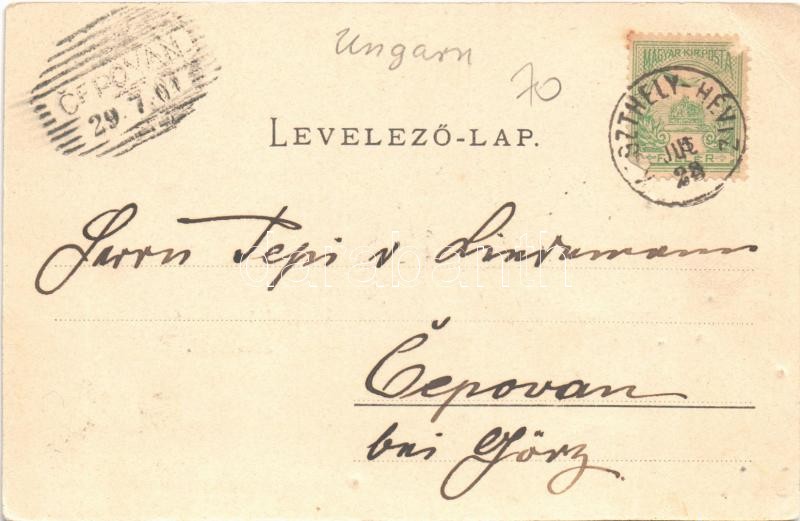 ČEPOVAN
29.7.01
Ungarn
70
MAGYAR KIR. POSTA
SZTHELY-HÉVIZ
28
FILLÉR
LEVELEZŐ-LAP.
Herrn Pepi v Lindemann
darabanth
Čepovan
bei Görz